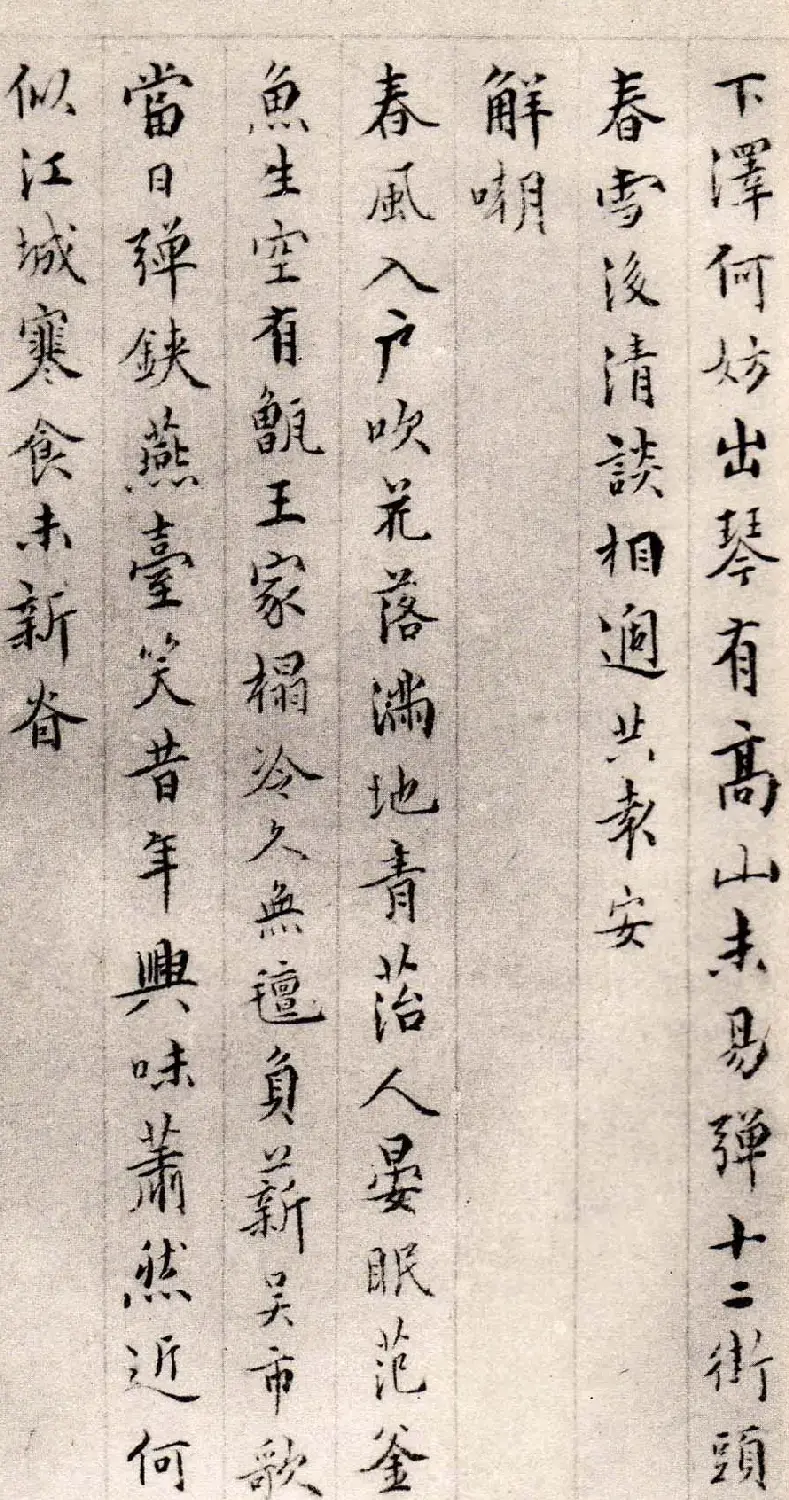 下澤何妨出琴有高山未易彈十二街頭
春雪後清談相過共報安
解嘲
春風入户吹花落滿地青苔人晏眠范釜
魚生空有甑王家榻冷久無氊負薪吴市歌
當日彈鋏燕臺笑昔年興味蕭然近何
似江城寒食未新